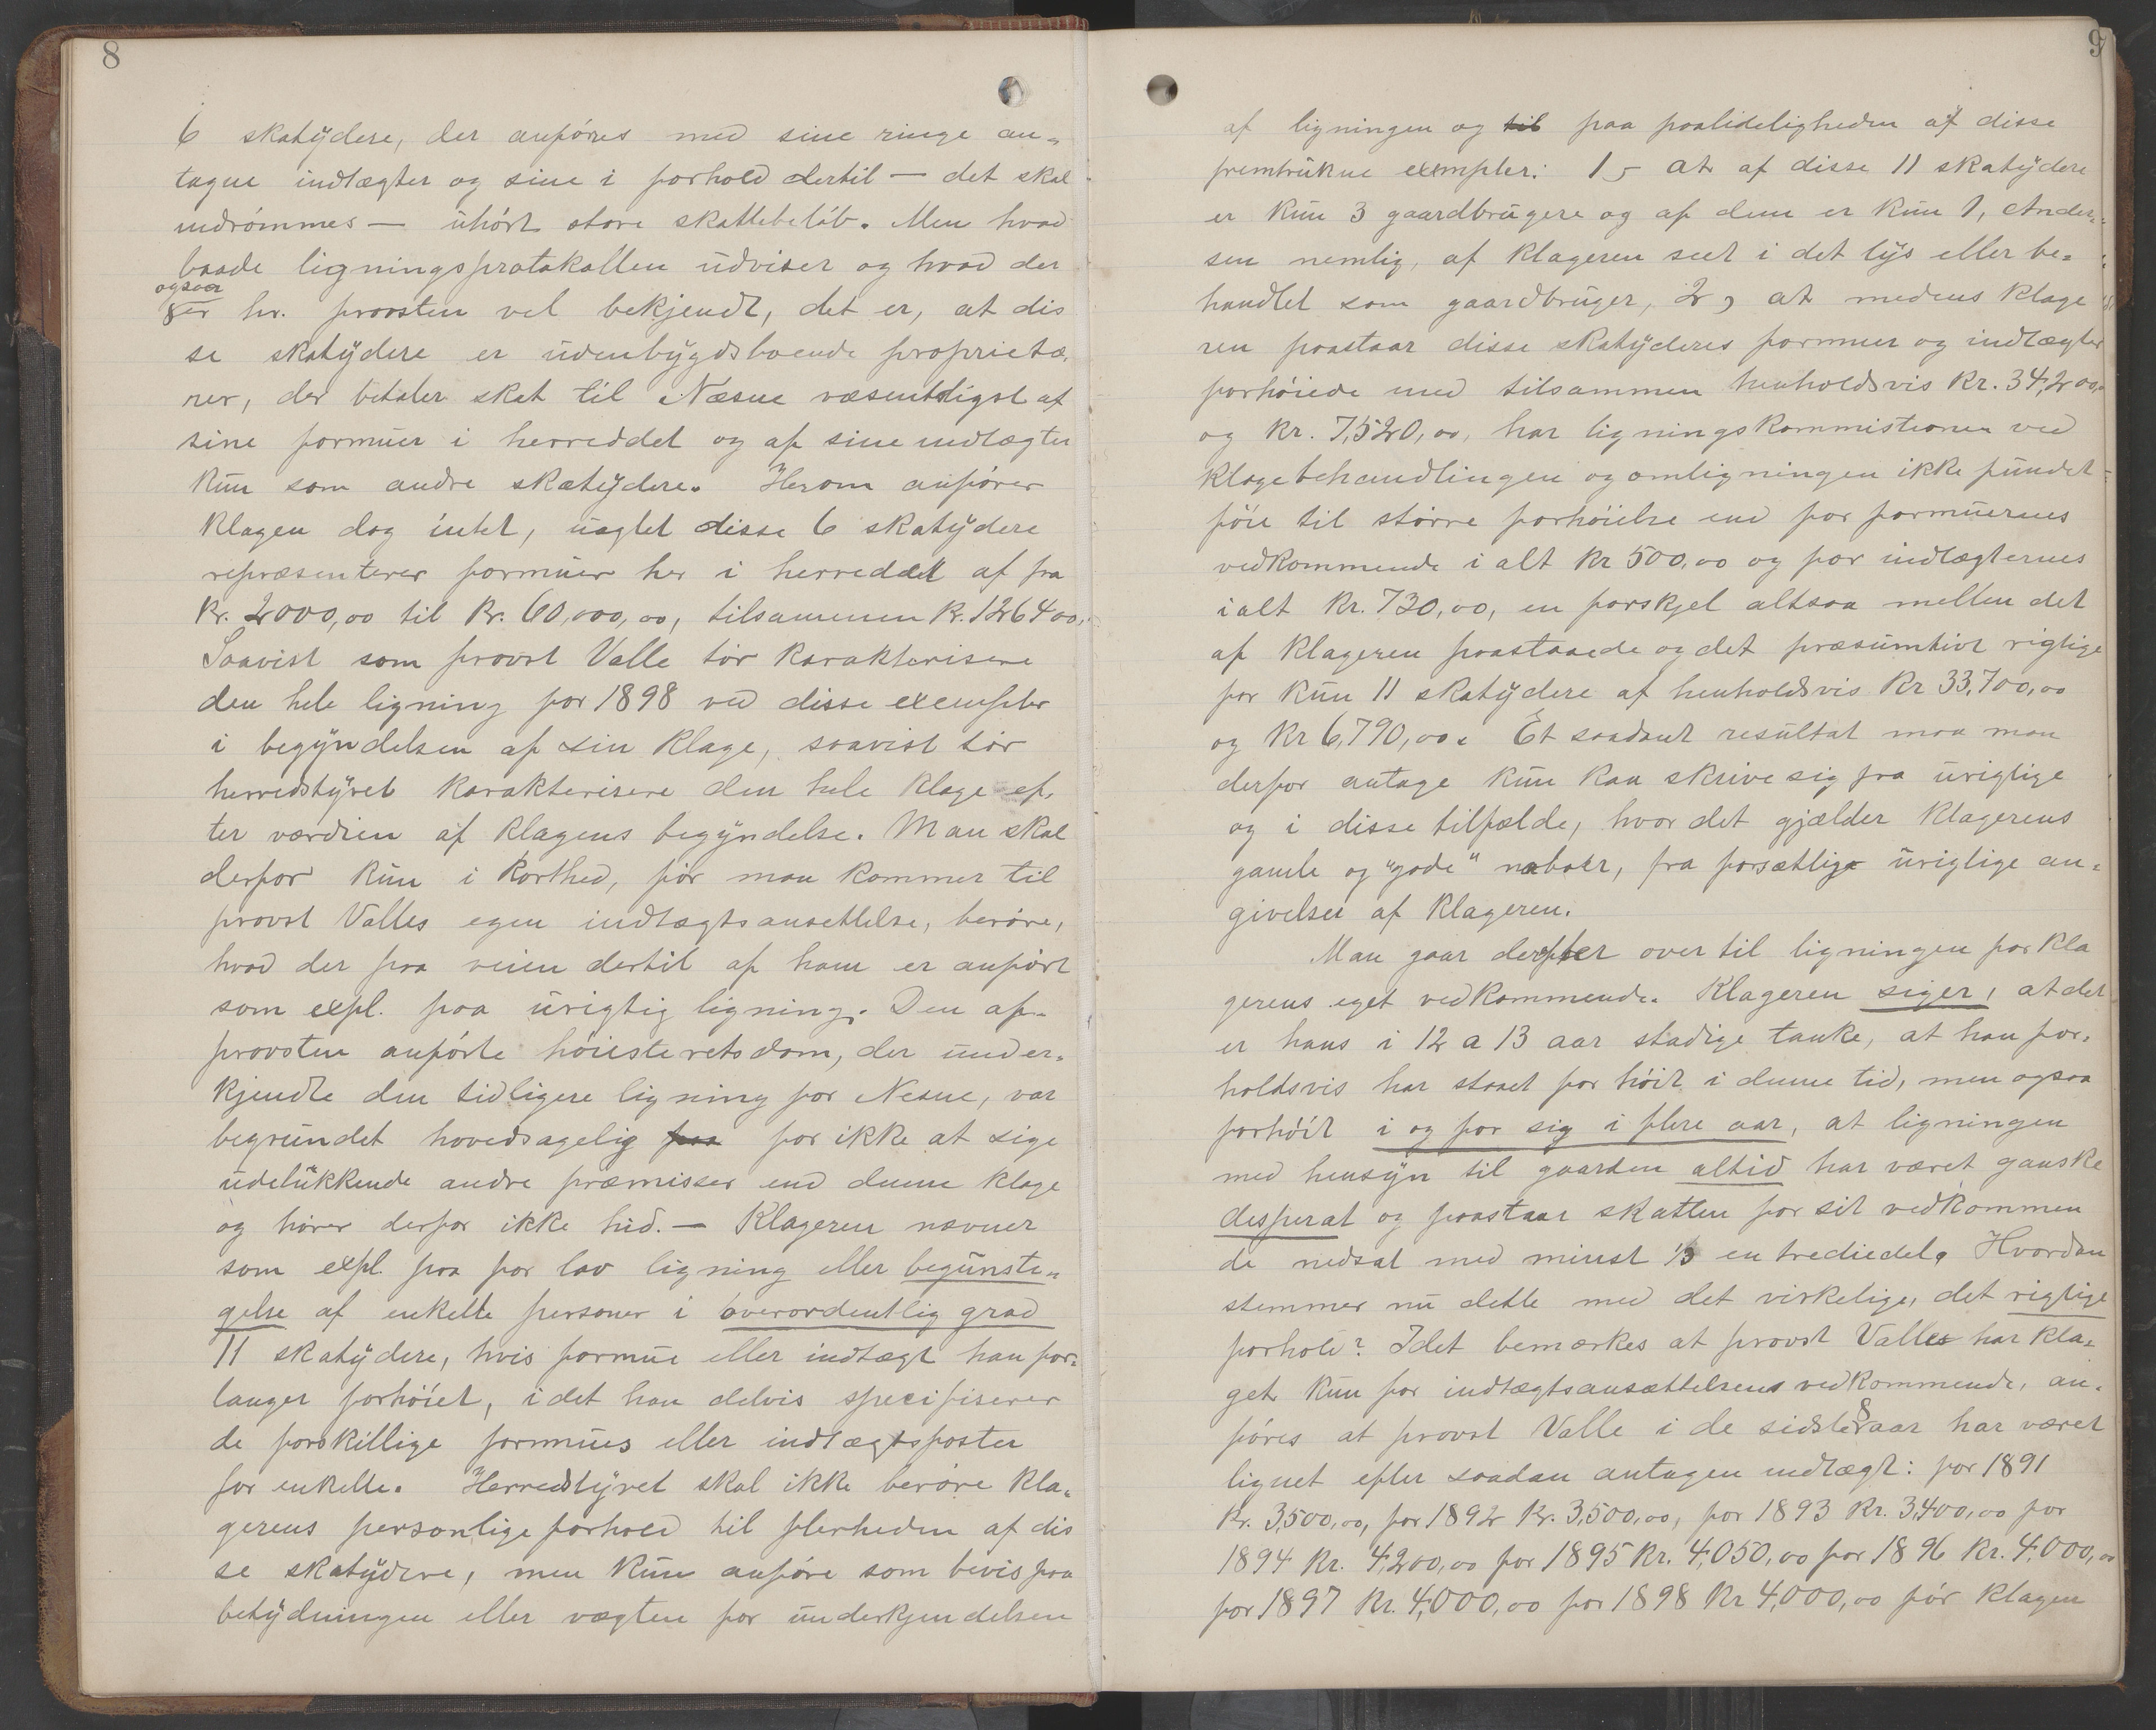 8
6 skatÿdere, der anføres med sine ringe an-
tagne indtægter og sine i forhold dertil — det skal
indrømmes — uhørt store skattebeløb. Men hvad
baade ligningsprotokollen udviser og hvad der
ogsaa
er hr. provsten vel bekjendt, det er, at dis
se skatÿdere er udenbÿgdsboende proprietæ-
rer, der betaler skat til Næsne væsentligst af
sine formuer i herreddet og af sine indtægter
kun som andre skatÿdere. Herom anfører
klagen dog intet, uagtet disse 6 skatÿdere
repræsenterer formuer her i herreddet af fra
Kr. 2000,00 til Kr. 60,000,00, tilsammen Kr. 126400,
Saavist som provst Valle tør karakterisere
den hele ligning for 1898 ved disse exempler
i begÿndelsen af sin klage, saavist tør
herredstÿret karakterisere den hele klage ef-
ter værdien af klagens begÿndelse. Man skal
derfor kun i korthed, før man kommer til
provst Valles egen indtægtsansettelse, berøre,
hvad der paa veien dertil af ham er anført
som expl. paa urigtig ligning. Den af
provsten anførte høiesteretsdom, der under-
kjendte den tidligere ligning for Nesne, var
begrundet hovedsagelig paa for ikke at sige
udelukkende andre præmisser end denne klage
og hører derfor ikke hid. — Klageren nævner
som expl. paa for lav ligning eller begunsti-
gelse af enkelte personer i overordentlig grad
11 skatÿdere, hvis formue eller indtægt han for-
langer forhøiet, idet han delvis specifiserer
de forskillige formues eller indtægtsposter
for enkelte. Herredstÿret skal ikke berøre kla-
gerens personlige forhold til flerheden af dis
se skatÿdere, men kun anføre som bevis paa
betÿdningen eller vægten for underkjendelsen
9
af ligningen og til paa paalideligheden af disse
fremtrukne exempler: 1, at af disse 11 skatÿdere
er kun 3 gaardbrugere og af dem er kun 1, Ander-
sen nemlig, af klageren seet i det lÿs eller be-
handlet som gaardbruger, 2, at medens klage
ren paastaar disse skatÿderes formuer og indtægter
forhøiede med tilsammen henholdsvis Kr. 34,200,
og Kr. 7,520,00, har ligningskommistionen ved
klagebehandlingen og omligningen ikke fundet
føie til større forhøielse end for formuernes
vedkommende i alt Kr 500,00 og for indtægternes
ialt Kr. 730,00, en forskjel altsaa mellem det
af klageren paastaaede og det præsumtivt rigtige
for kun 11 skatÿdere af henholdsvis Kr 33,700,00
og Kr 6,790,00. Et saadant resultat maa man
derfor antage kun kan skrive sig fra urigtige
og i disse tilfælde, hvor det gjælder klagerens
gamle og "gode" naboer, fra forsætlige urigtige an-
givelser af klageren.
Man gaar derefter over til ligningen for kla
gerens eget vedkommende. Klageren siger, at det
er hans i 12 a 13 aar stadige tanke, at han for-
holdsvis har staaet for høit i denne tid, men ogsaa
forhøit i og for sig i flere aar, at ligningen
med hensÿn til gaarden altid har været ganske
desperat og paastaar skatten for sit vedkommen
de nedsat med minst 1/3 en trediedel. Hvordan
stemmer nu dette med det virkelige, det rigtige
forhold? Idet bemærkes at provst Valle har kla-
get kun for indtægtsansættelsens vedkommende, an-
føres at provst Valle i de sidste 8 aar har været
lignet efter saadan antagen indtægt: for 1891
Kr. 3,500,00, for 1892 Kr. 3,500,00, for 1893 Kr. 3,400,00 for
1894 Kr. 4,200,00 for 1895 Kr. 4,050,00 for 1896 Kr. 4,000,00
for 1897 Kr. 4,000,00 for 1898 Kr 4,000,00 før klagen